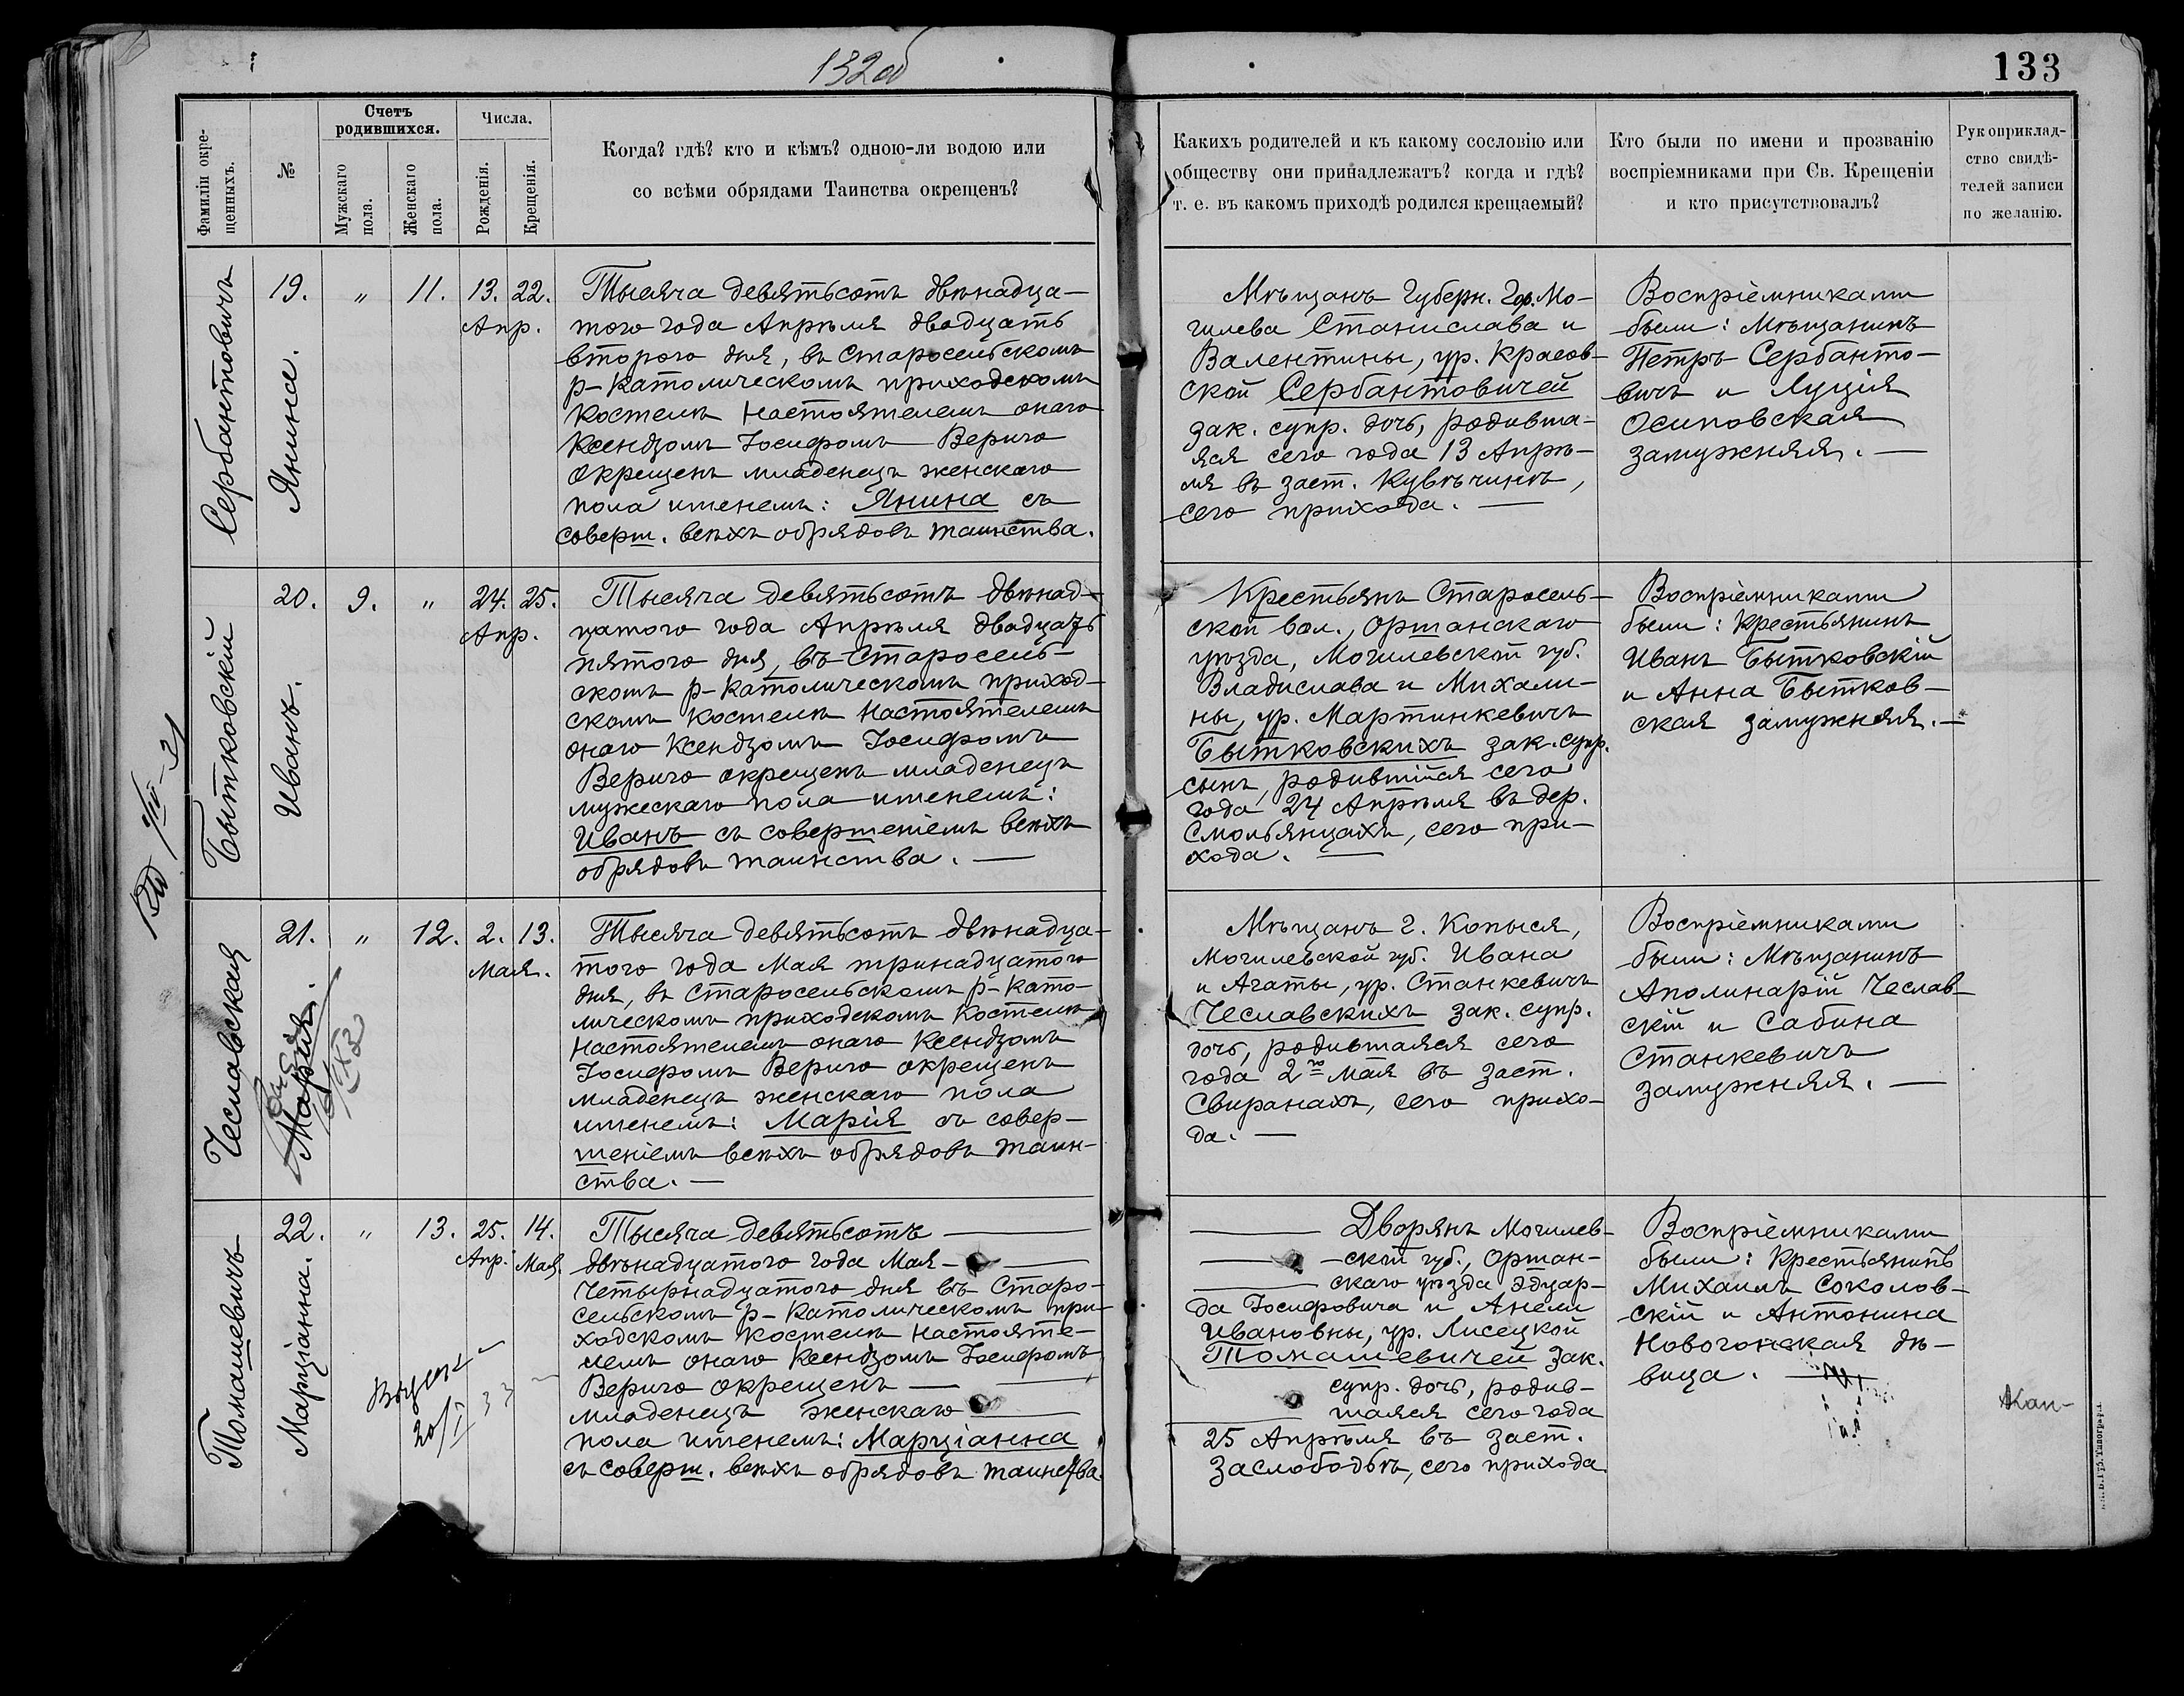 132об
133
Фамиліи окре-
щенныхъ.
№
Счетъ
родившихся.
Мужскаго
пола.
Женскаго
пола.
Числа.
Рожденія.
Крещенія.
Когда? гдѣ? кто и кѣмъ? одною-ли водою или
со всѣми обрядами Таинства окрещенъ?
Какихъ родителей и къ какому сословію или
обществу они принадлежатъ? когда и гдѣ?
т. е. въ какомъ приходѣ родился крещаемый?
Кто были по имени и прозванію
воспріемниками при Св. Крещеніи
и кто присутствовалъ?
Рукоприклад-
ство свидѣ-
телей записи
по желанію.
Сербантовичъ
19.
Янина.
"
11.
13. 22.
Апр.
Тысяча девятьсотъ двѣнадца-
того года Апрѣля двадцать
второго дня, въ Старосельскомъ
р-католическомъ приходскомъ
костелѣ Настоятелемъ онаго
Ксендзомъ Іосифомъ Верыго
окрещенъ младенецъ женскаго
пола именемъ: Янина съ
соверш. всѣхъ обрядовъ таинства.
Мѣщанъ Губерн. Гор. Мо-
гилева Станислава и
Валентины, ур. Красов-
ской Сербантовичей
зак. супр. дочь, родивша-
яся сего года 13 Апрѣ-
ля въ заст. Кувѣчинѣ,
сего прихода. —
Воспріемниками
были: Мѣщанинъ
Петръ Сербанто-
вичъ и Луція
Осиповская
замужняя. —
Бытковскій
20.
Иванъ.
9.
"
24. 25.
Апр.
Тысяча девятьсотъ двѣнад-
цатого года Апрѣля двадцать
пятого дня, въ Старосель-
скомъ р-католическомъ приход-
скомъ костелѣ Настоятелемъ
онаго Ксендзомъ Іосифомъ
Верыго окрещенъ младенецъ
мужескаго пола именемъ:
Иванъ съ совершеніемъ всѣхъ
обрядовъ таинства. —
Крестьянъ Старосель-
ской вол., Оршанскаго
уѣзда, Могилевской губ.
Владислава и Михали-
ны, ур. Мартинкевичъ
Бытковскихъ зак. супр.
сынъ, родившійся сего
года 24 Апрѣля въ дер.
Смольянцахъ, сего при-
хода. —
Воспріемниками
были: Крестьянинъ
Иванъ Бытковскій
и Анна Бытков-
ская замужняя. —
Чеславская
21.
Марія.
"
12.
2. 13.
Мая.
Тысяча девятьсотъ двѣнадца-
того года Мая тринадцатого
дня, въ Старосельскомъ р-като-
лическомъ приходскомъ костелѣ
Настоятелемъ онаго Ксендзомъ
Іосифомъ Верыго окрещенъ
младенецъ женскаго пола
именемъ: Марія съ совер-
шеніемъ всѣхъ обрядовъ таин-
ства. —
Мѣщанъ г. Копыся,
Могилевской губ. Ивана
и Агаты, ур. Станкевичъ
Чеславскихъ зак. супр.
дочь, родившаяся сего
года 2го Мая въ заст.
Свиранахъ, сего прихо-
да. —
Воспріемниками
были: Мѣщанинъ
Аполинарій Чеслав-
скій и Сабина
Станкевичъ
замужняя. —
Томашевичъ
22.
Марціанна.
"
13.
25. 14.
Апр. Мая
20/I 33
Тысяча девятьсотъ —
двѣнадцатого года Мая —
четырнадцатого дня въ Старо-
сельскомъ р-католическомъ при-
ходскомъ костелѣ Настояте-
лемъ онаго Ксендзомъ Іосифомъ
Верыго окрещенъ —
младенецъ женскаго —
пола именемъ: Марціанна
съ соверш. всѣхъ обрядовъ таинства.
— Дворянъ Могилев-
— ской губ., Оршан-
— скаго уѣзда Эдуар-
да Іосифовича и Анели
Ивановны, ур. Лисецкой
Томашевичей зак.
супр. дочь, родив-
— шаяся сего года
25 Апрѣля въ заст.
Заслободьѣ, сего прихода.
Воспріемниками
были: Крестьянинъ
Михаилъ Соколов-
скій и Антонина
Новогонская дѣ-
вица. —